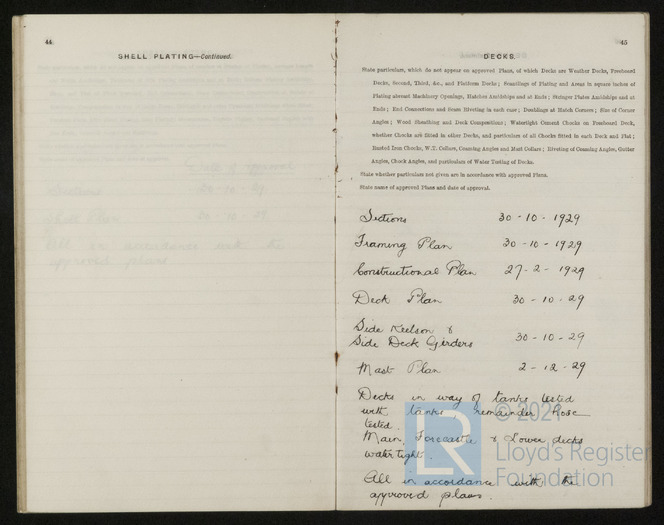 44
SHELL PLATING—Continued.
45
DECKS.
State particulars, which do not appear on approved Plans, of which Decks are Weather Decks, Freeboard
Decks, Second, Third, &c., and Platform Decks; Scantlings of Plating and Areas in square inches of
Plating abreast Machinery Openings, Hatches Amidships and at Ends; Stringer Plates Amidships and at
Ends; End Connections and Seam Riveting in each case; Doublings at Hatch Corners; Size of Corner
Angles; Wood Sheathing and Deck Compositions; Watertight Cement Chocks on Freeboard Deck,
whether Chocks are fitted in other Decks, and particulars of all Chocks fitted in each Deck and Flat;
Rusted Iron Chocks, W.T. Collars, Coaming Angles and Mast Collars; Riveting of Coaming Angles, Gutter
Angles, Chock Angles, and particulars of Water Testing of Decks.
State whether particulars not given are in accordance with approved Plans.
State name of approved Plans and date of approval.
Sections 30-10-1929
Framing Plan 30-10-1929
Constructional Plan 27-2-1929
Deck Plan 30-10-29
Side Keelson &
Side Deck Girders 30-10-29
Mast Plan 2-12-29
Decks in way of tanks tested
with tanks remainder hose
tested.
Main, Forecastle & Lower decks
watertight.
All in accordance with the
approved plans.
LR
© 2021
Lloyd's Register
Foundation